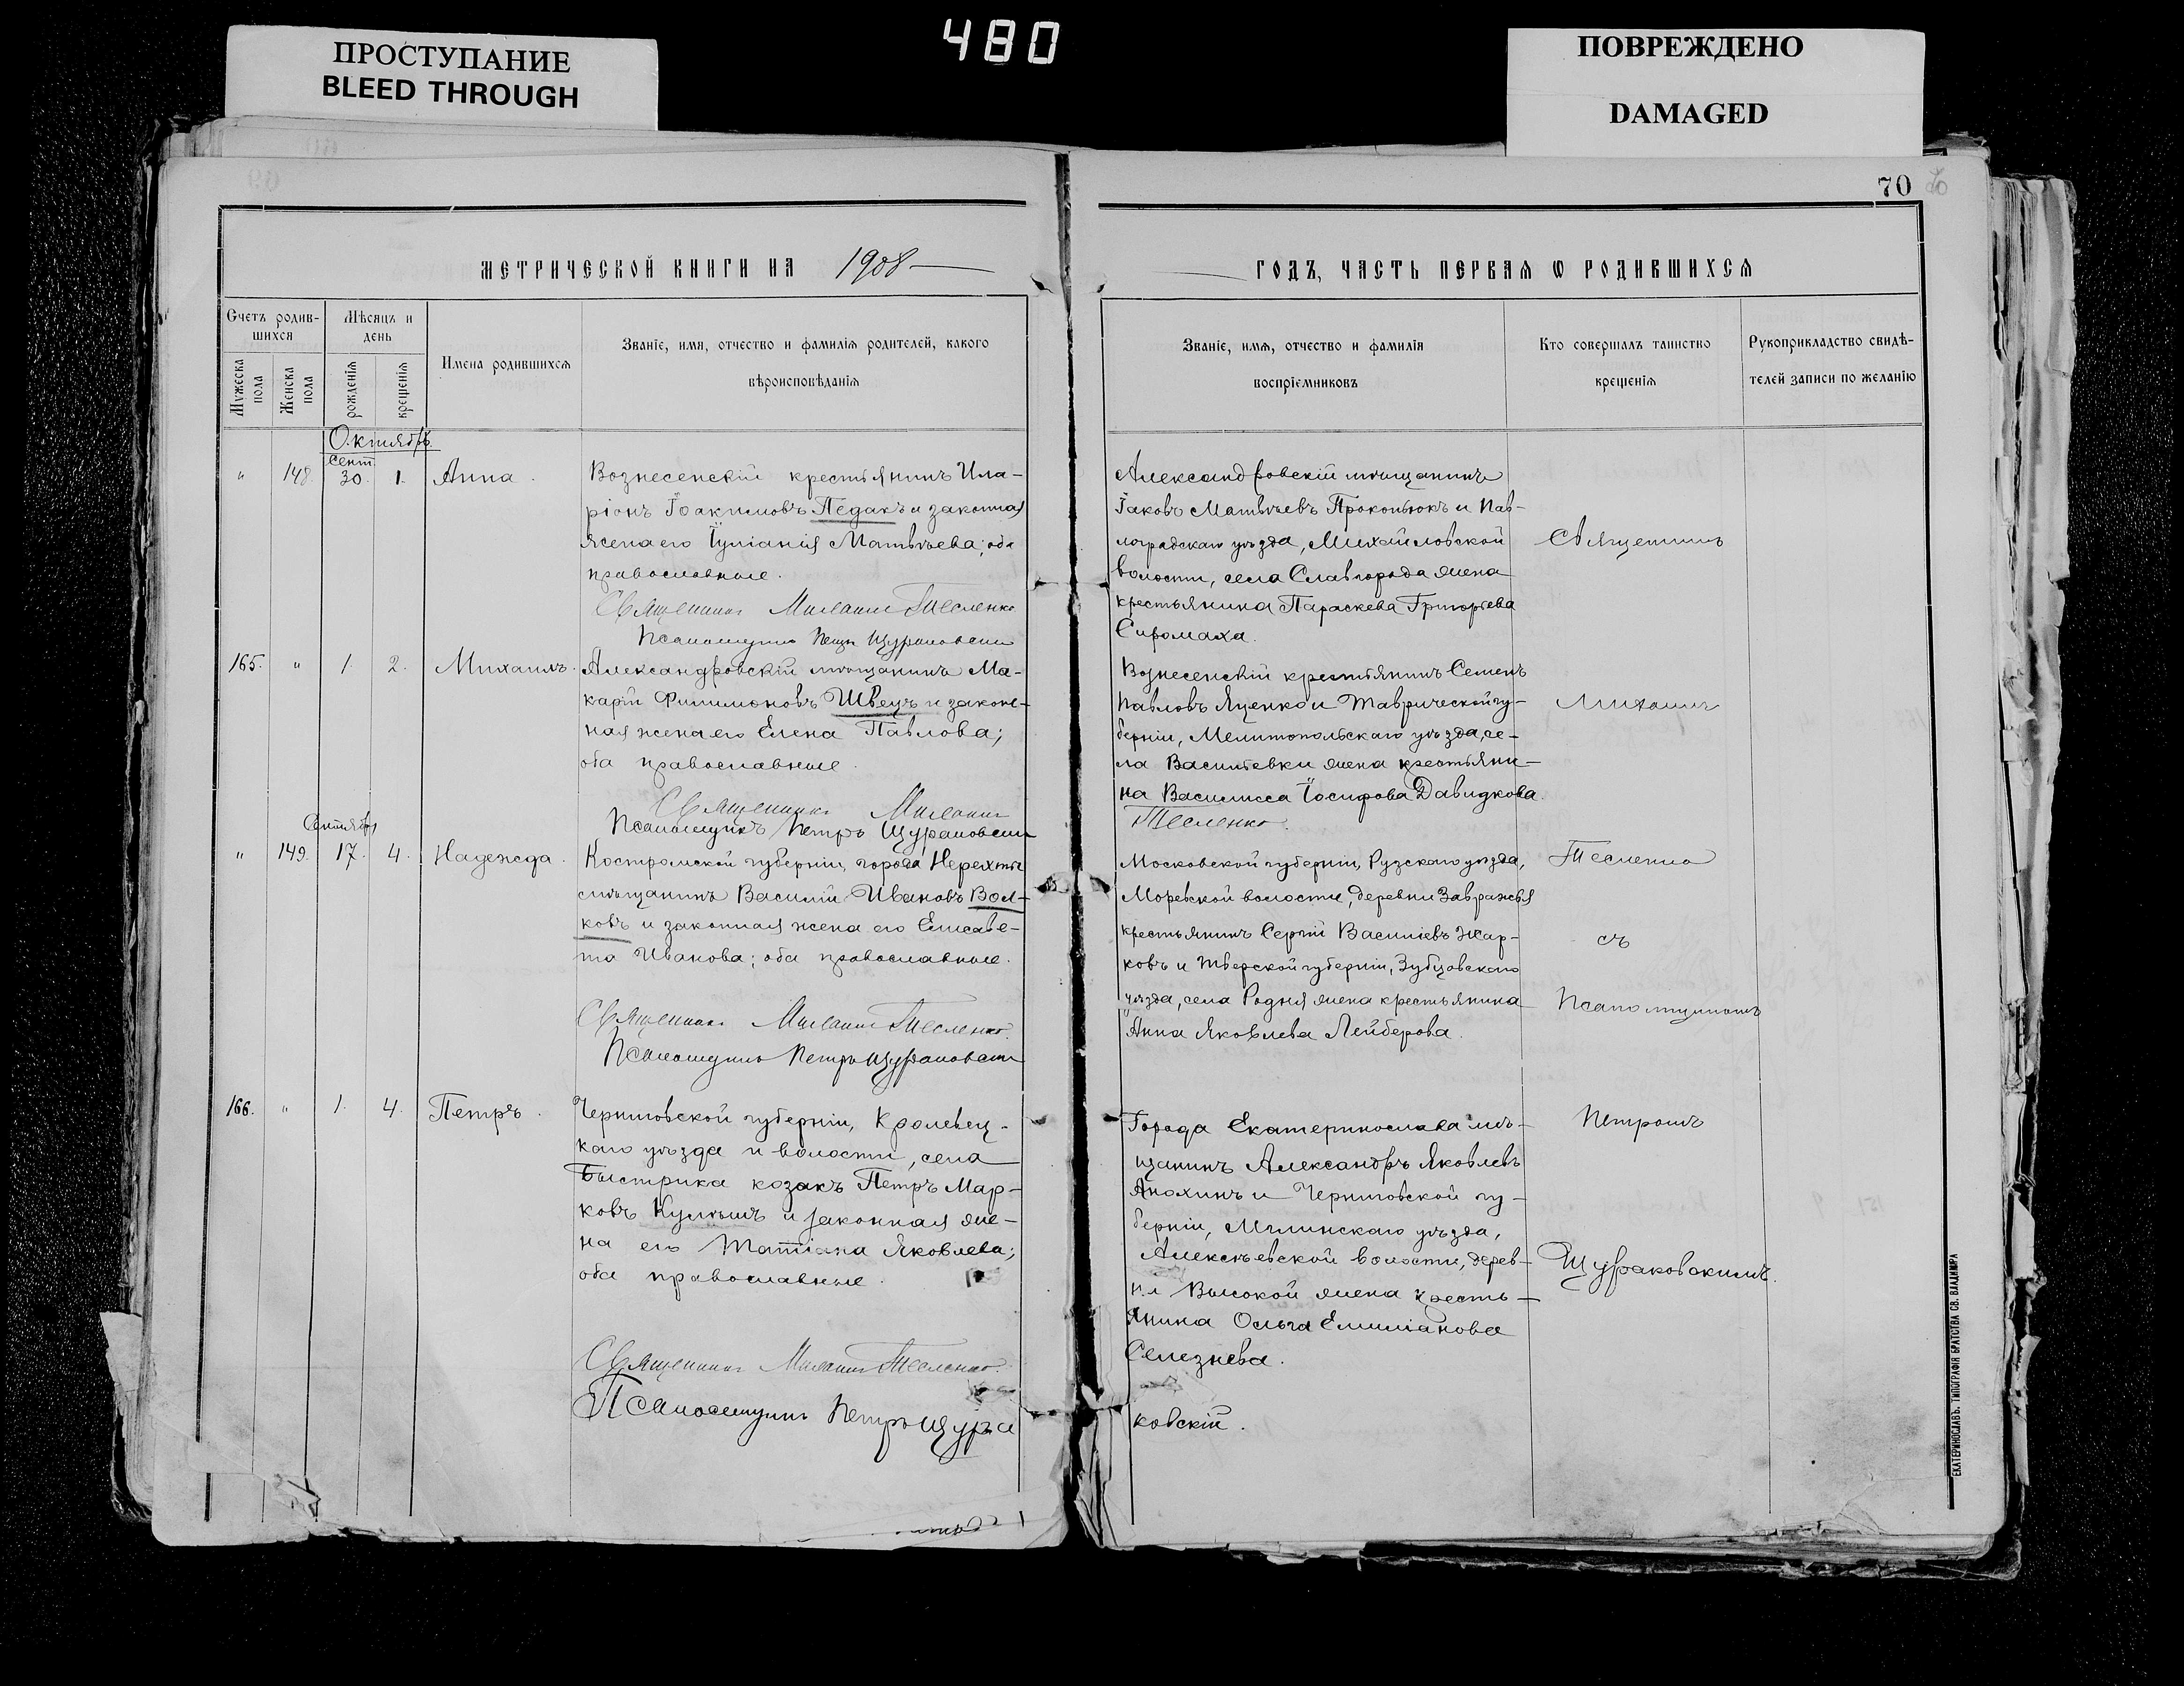 480
ПРОСТУПАНИЕ
BLEED THROUGH
ПОВРЕЖДЕНО
DAMAGED
70
МЕТРИЧЕСКОЙ КНИГИ НА 1908
ГОДЪ, ЧАСТЬ ПЕРВАЯ Ѡ РОДИВШИХСЯ
Счетъ родив-
шихся
Мужеска пола
Женска пола
Мѣсяцъ и
день
рожденія
крещенія
Имена родившихся
Званіе, имя, отчество и фамилія родителей, какого
вѣроисповѣданія
Званіе, имя, отчество и фамилія
воспріемниковъ
Кто совершалъ таинство
крещенія
Рукоприкладство свидѣ-
телей записи по желанію
Октябрь
Сент.
" 148. 30. 1. Анна.
Вознесенскій крестьянинъ Ила-
ріонъ Іоакимовъ Педакъ и законная
жена его Іуліанія Матвѣева; оба
православные.
Священникъ Тесленко
Псаломщикъ
Александровскій мѣщанинъ
Іаковъ Матвѣевъ Прокопюкъ и Пав-
лоградскаго уѣзда, Михайловской
волости, села Славгорода жена
крестьянина Параскева Григорьева
Сиромаха.
Священникъ
165. " 1. 2. Михаилъ.
Александровскій мѣщанинъ Ма-
карій Филимоновъ Швецъ и закон-
ная жена его Елена Павлова;
оба православные.
Священникъ
Псаломщикъ Петръ
Вознесенскій крестьянинъ Семенъ
Павловъ Яценко и Таврической гу-
берніи, Мелитопольскаго уѣзда, се-
ла Васильевки жена крестьяни-
на Василисса Іосифова Давидкова.
Тесленко.
Сентября
" 149. 17. 4. Надежда.
Костромской губерніи, города Нерехты
мѣщанинъ Василій Ивановъ Вол-
ковъ и законная жена его Елисаве-
та Иванова; оба православные.
Священникъ Тесленко
Псаломщикъ Петръ
Московской губерніи, Рузскаго уѣзда,
Моревской волости, деревни Завражья
крестьянинъ Сергій Василіевъ Жар-
ковъ и Тверской губерніи, Зубцовскаго
уѣзда, села Родня жена крестьянина
Анна Яковлева Лейберова.
Тесленко
съ
Псаломщикомъ
166. " 1. 4. Петръ.
Черниговской губерніи, Кролевец-
каго уѣзда и волости, села
Быстрика козакъ Петръ Мар-
ковъ и законная же-
на его Татіана Яковлева;
оба православные.
Священникъ Тесленко.
Псаломщикъ Петръ Щура
Города Екатеринослава мѣ-
щанинъ Александръ Яковлевъ
Анохинъ и Черниговской гу-
берніи, Мглинскаго уѣзда,
Алексѣевской волости, дерев-
ни Высокой жена кресть-
янина Ольга Емиліанова
Селезнева.
ковскій.
Петромъ
Щураковскимъ.
ЕКАТЕРИНОСЛАВЪ. ТИПОГРАФІЯ БРАТСТВА СВ. ВЛАДИМІРА